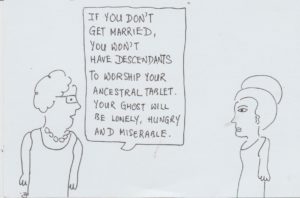 IF YOU DON'T
GET MARRIED,
YOU WON'T
HAVE DESCENDANTS
TO WORSHIP YOUR
ANCESTRAL TABLET.
YOUR GHOST WILL
BE LONELY, HUNGRY
AND MISERABLE.